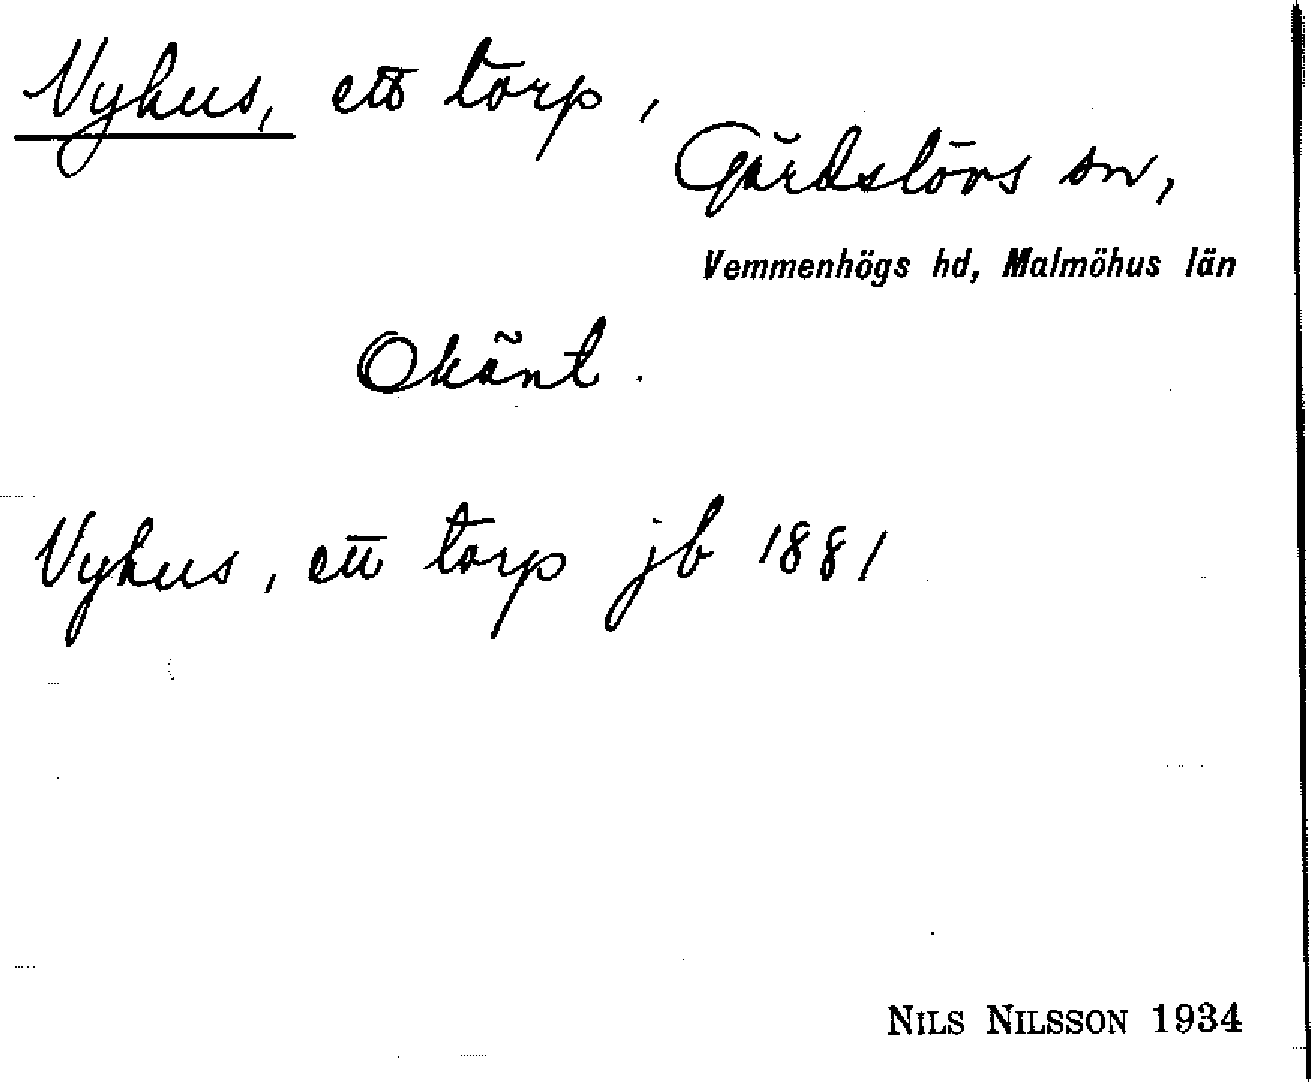 Vyhus, ett torp,
Gärdslövs sn,
Vemmenhögs hd, Malmöhus län
Okänt.
Vyhus, ett torp jb 1881
NILS NILSSON 1934